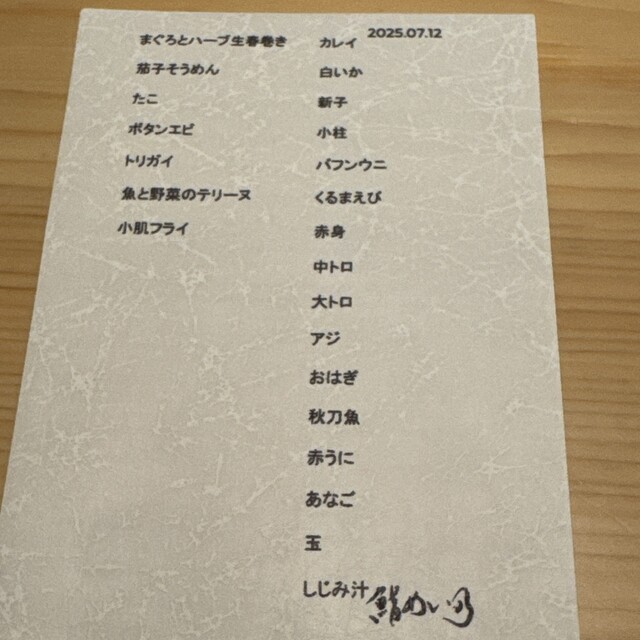 2025.07.12
まぐろとハーブ生春巻き
茄子そうめん
たこ
ボタンエビ
トリガイ
魚と野菜のテリーヌ
小肌フライ
カレイ
白いか
新子
小柱
バフンウニ
くるまえび
赤身
中トロ
大トロ
アジ
おはぎ
秋刀魚
赤うに
あなご
玉
しじみ汁